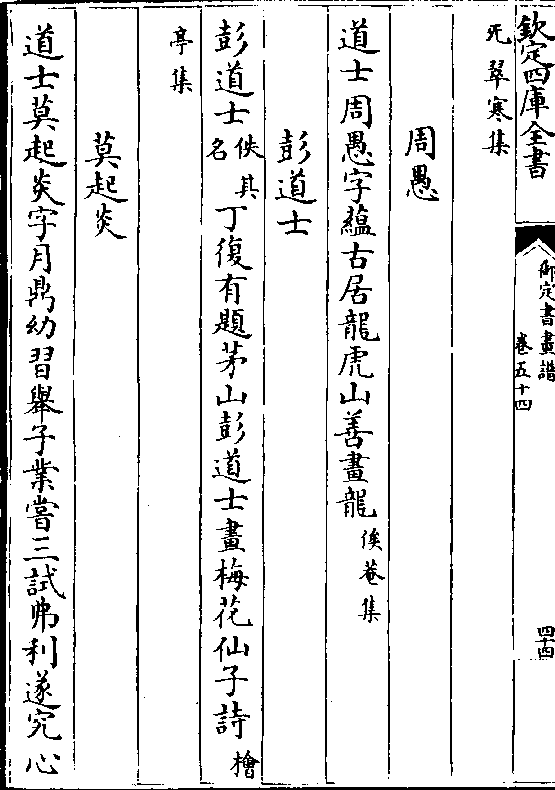 欽定四庫全書
御定書畫譜
卷五十四
四十四
旡翠寒集
周愚
道士周愚字蘊古居龍虎山善畫龍俟菴集
彭道士
彭道士佚其名丁復有題茅山彭道士畫梅花仙子詩檜
亭集
莫起炎
道士莫起炎字月鼎幼習舉子業嘗三試弗利遂究心